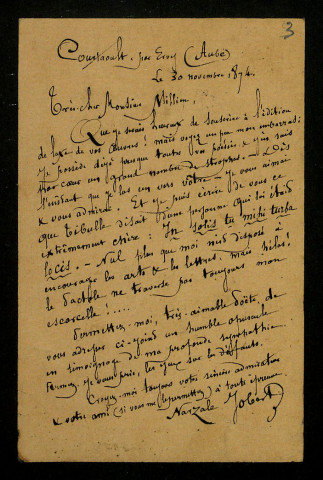 3
Courtaoult, par Ervy (Aube)
Le 30 novembre 1874.
Très cher Monsieur Millien,
Que je serais heureux de souscrire à l'édition
de luxe de vos œuvres ! mais voyez un peu mon embarras :
je possède déjà presque toutes vos poésies & j'en sais
par cœur un grand nombre de strophes. — Dès
l'instant que je las un vers vôtre — je vous aimai
& vous admirai. Et je puis écrire de vous ce
que Tibulle disait d'une personne qui lui était
extrêmement chère : In solis tu mihi turba
locis. — Nul plus que moi n'est disposé à
encourager les arts & les lettres, mais hélas !
le Pactole ne traverse pas toujours mon
escarcelle !....
Permettez-moi, très-aimable Poète, de
vous adresser ci-joint un humble opuscule
en témoignage de ma profonde sympathie.
Fermez, je vous prie, les yeux sur les défauts.
Croyez-moi toujours votre sincère admirateur
& votre ami (si vous me le permettez) à toute épreuve.
Narzale Jobert